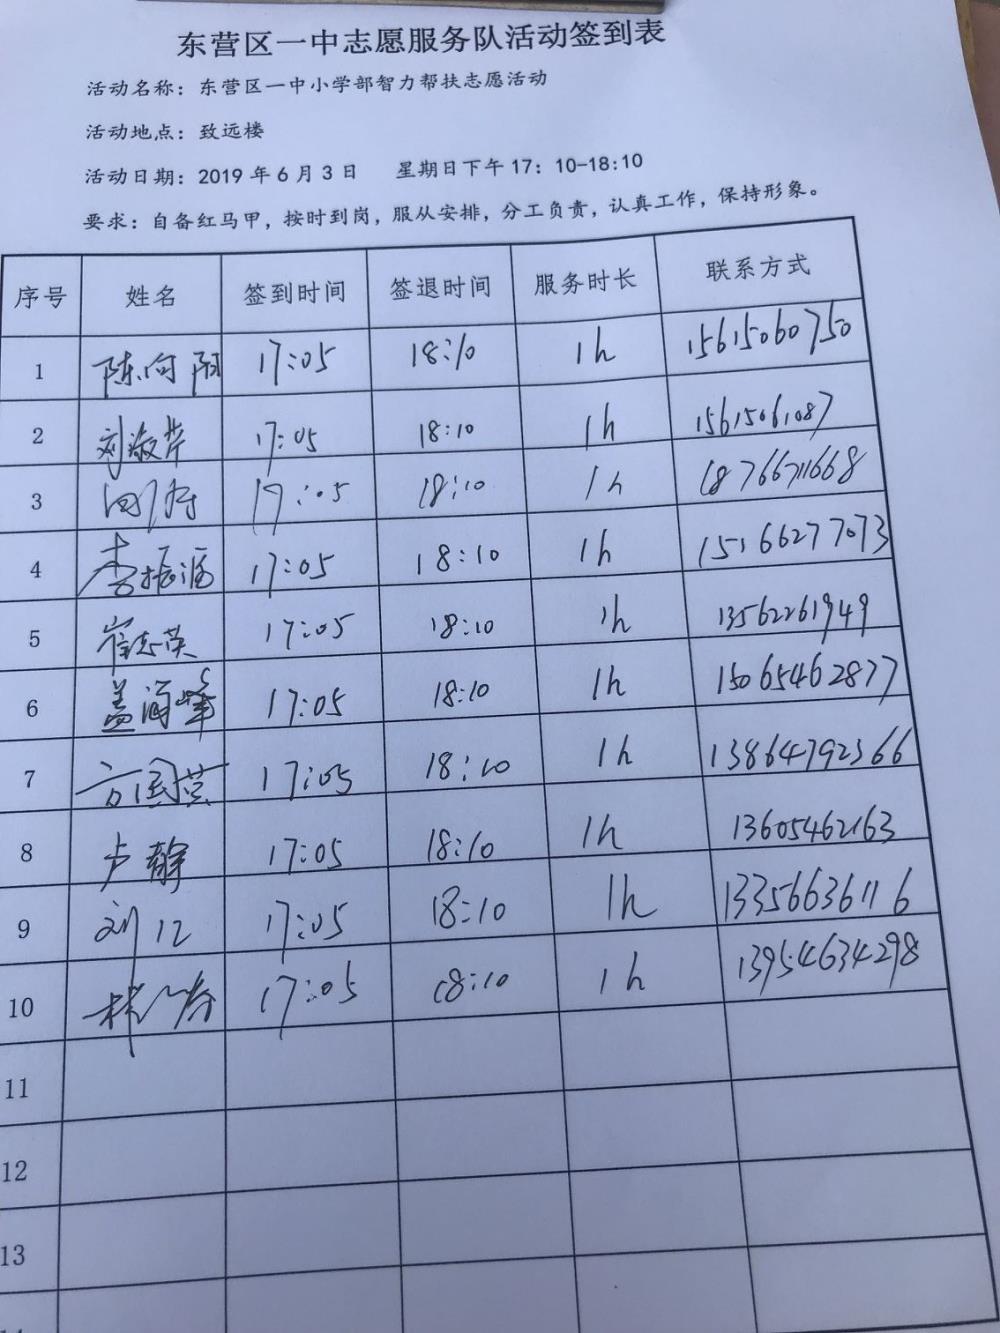 东营区一中志愿服务队活动签到表
活动名称：东营区一中小学部智力帮扶志愿活动
活动地点：致远楼
活动日期：2019 年 6 月 3 日 星期日下午 17：10-18:10
要求：自备红马甲，按时到岗，服从安排，分工负责，认真工作，保持形象。
序号 姓名 签到时间 签退时间 服务时长 联系方式
1 陈向阳 17:05 18:10 1h 15615060750
2 刘淑芹 17:05 18:10 1h 15615061087
3 17:05 18:10 1h 18766711668
4 李振海 17:05 18:10 1h 15166277073
5 崔志英 17:05 18:10 1h 13562261949
6 盖海峰 17:05 18:10 1h 15065462877
7 方国英 17:05 18:10 1h 13864792366
8 卢静 17:05 18:10 1h 13605462163
9 刘江 17:05 18:10 1h 13356636116
10 17:05 18:10 1h 13954634298
11
12
13